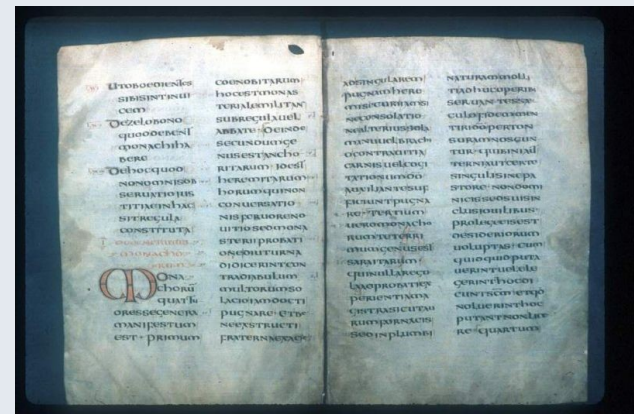 UTOBOEDIENTES
SIBISINTINUI
CEM
DEZELOBONO
QUODDEBENT
MONACHIHA
BERE
DEHOCQUOD
NONOMNISOB
SERUATIOIUS
TITIAEINHAC
SITREGULA
CONSTITUTA
MONACHO
RUM
MONA
CHORŪ
QUATTU
ORESSEGENERA
MANIFESTUM
EST · PRIMUM
COENOBITARUM
HOCESTMONAS
TERIALEMILITAN
SUBREGULAUEL
ABBATE · DEINDE
SECUNDUMGE
NUSESTANCHO
RITARUM IDEST
HEREMITARUM
HORUMQUINON
CONUERSATIO
NISFERUORENO
UITIOSEDMONA
STERIIPROBATI
ONEDIUTURNA
DIDICERINTCON
TRADIABULUM
MULTORUMSO
LACIOIAMDOCTI
PUGNARE · ETBE
NEEXSTRUCTI
FRATERNAEXACIE
ADSINGULAREM
PUGNAMHERE
NECONSOLATIO
NEALTERIUSSOLA
MANUUELBRACHI
OCONTRAUITIA
CARNISUELCOGI
TATIONUMDO
AUXILIANTESUF
FICIUNTPUGNA
RE · TERTIUM
UEROMONACHO
RUMTETERRI
MUMGENUSEST
SARAITARUM
QUINULLAREGU
LAADPROBATIEX
PERIENTIAMA
GISTRASICUTAU
RUMFORNACIS
SEDINPLUMBI
NATURAMOLLI
TIADHUCOPERIB
SERUANTESSAE
CULOFIDEMMEN
TIRIDOPERTON
SURAMNOSCUN
TUR · QUIBINIAUT
TERNIAUTCERTE
SINGULISINEPA
STORE NONDOM
NICISSEDSUISIN
CLUSIOUILIBUS
PROLEGEEISEST
DESIDERIORUM
UOLUPTAS · CUM
QUICQUIDPUTA
UERINTUELELE
GERINTHOCDI
CUNTSCMETQD
NOLUERINTHOC
PUTANTNONLICE
RE · QUARTUM